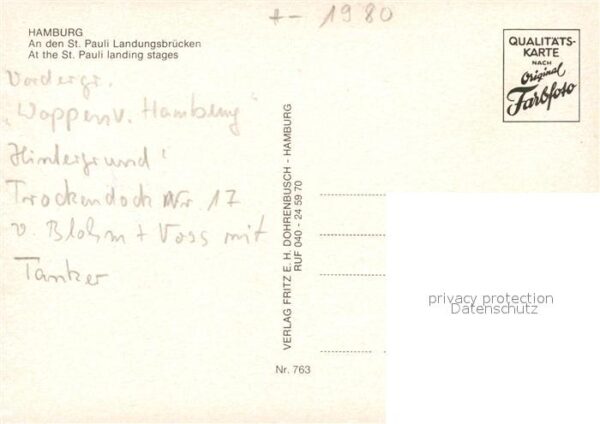 +- 1980
HAMBURG
An den St. Pauli Landungsbrücken
At the St. Pauli landing stages
Vordergr.
"Wappen v. Hamburg"
Hintergrund:
Trockendock Nr 17
v. Blohm + Voss mit
Tanker
VERLAG FRITZ E. H. DOHRENBUSCH - HAMBURG
RUF 040 - 24 59 70
Nr. 763
QUALITÄTS-
KARTE
NACH
Original
Farbfoto
privacy protection
Datenschutz